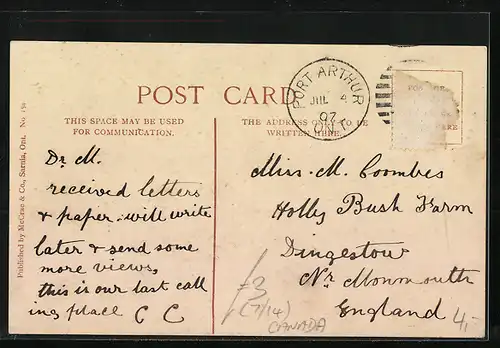 POST CARD
THIS SPACE MAY BE USED
FOR COMMUNICATION.
THE ADDRESS ONLY TO BE
WRITTEN HERE.
PORT ARTHUR
JUL 4
07
ONT.
Published by McCrae & Co., Sarnia, Ont. No
Dr M.
received letters
& paper. will write
later & send some
more views,
this is our last call
ing place C C
Miss. M. Coombes
Holly Bush Farm
Dingestow
Nr Monmouth
England
=3
(7/14)
CANADA
4,-